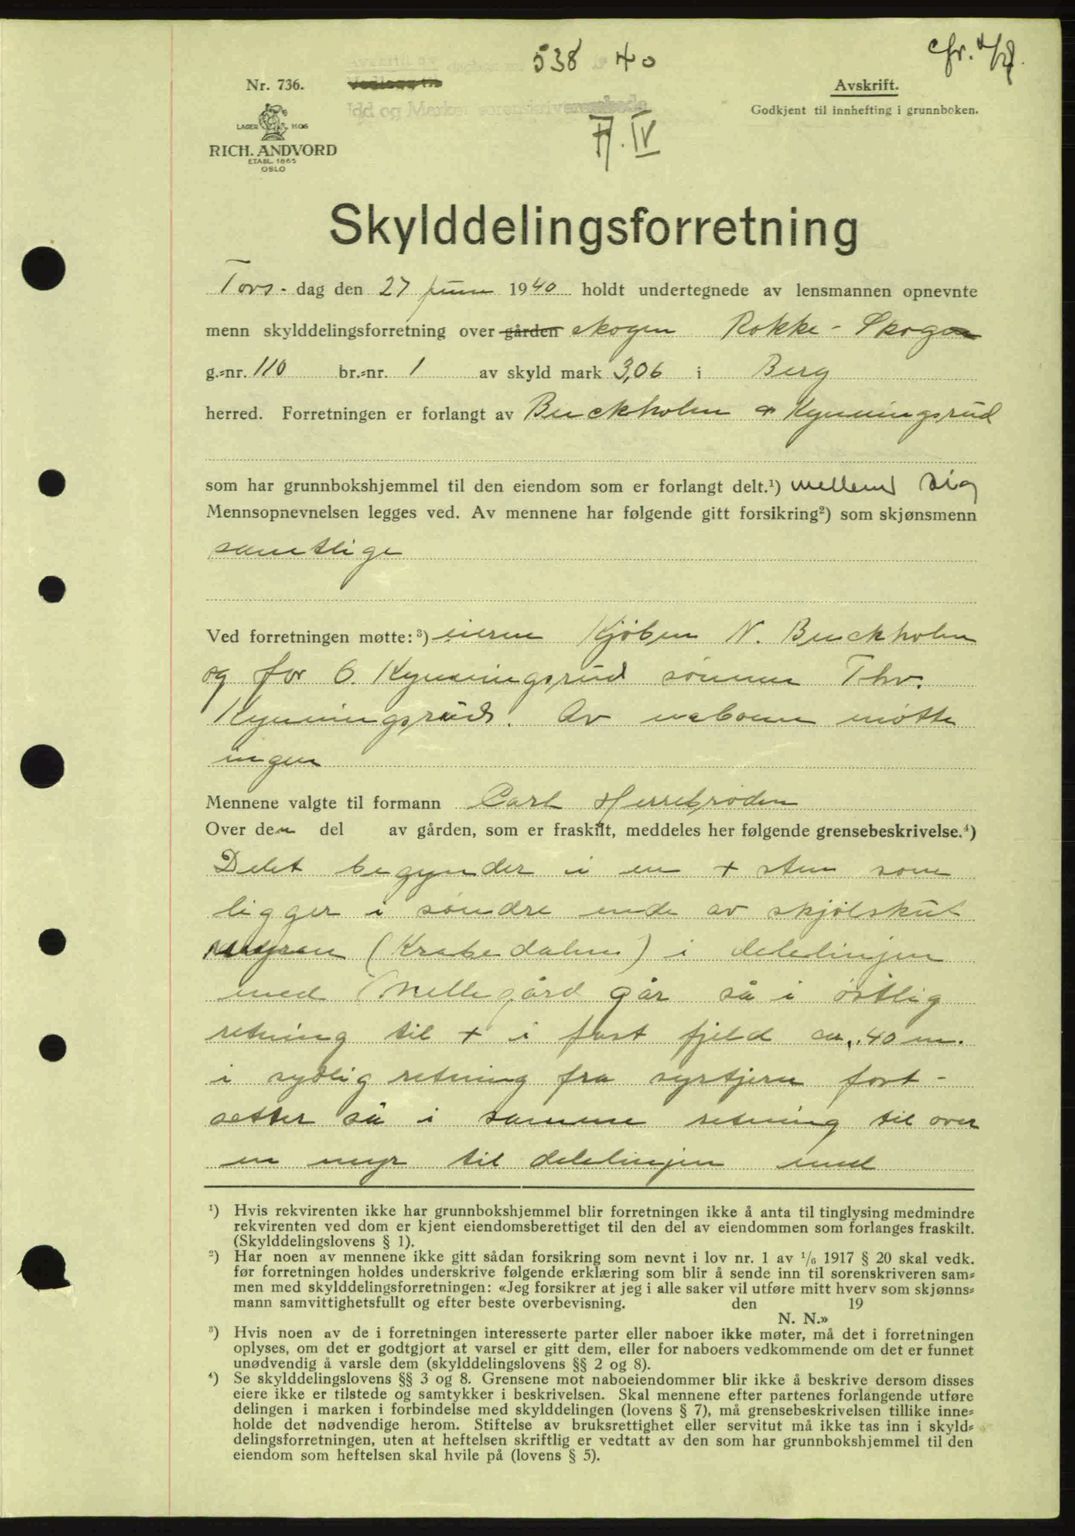 538 40
cfr. 4/8.
Nr. 736.
Avskrift.
Idd og Marker sorenskriverembede
Godkjent til innhefting i grunnboken.
A. IV
LAGER 1106
RICH. ANDVORD
ETABL. 1865
OSLO
Skylddelingsforretning
Tors- dag den 27 juni 1940 holdt undertegnede av lensmannen opnevnte
menn skylddelingsforretning over gården skogen Rokke-Skogen
g.=nr. 110 br.=nr. 1 av skyld mark 3,06 i Berg
herred. Forretningen er forlangt av Buckholm & Kynningsrud
som har grunnbokshjemmel til den eiendom som er forlangt delt.¹) mellem sig
Mennsopnevnelsen legges ved. Av mennene har følgende gitt forsikring²) som skjønsmenn
samtlige
Ved forretningen møtte:³) eieren Kjøben N. Buckholm
og for O. Kynningsrud sønnen Thv.
Kynningsrud. Av naboene møtte
ingen
Mennene valgte til formann Carl Herrebrøden
Over den del av gården, som er fraskilt, meddeles her følgende grensebeskrivelse.⁴)
Delet begynder i en + sten som
ligger i søndre ende av skjølskut
myren (Krabedalen) i delelinjen
med Mellegård går så i østlig
retning til + i fast fjeld ca. 40 m.
i sydlig retning fra syrtjern fort-
setter så i samme retning til over
en myr til delelinjen med
¹) Hvis rekvirenten ikke har grunnbokshjemmel blir forretningen ikke å anta til tinglysing medmindre
rekvirenten ved dom er kjent eiendomsberettiget til den del av eiendommen som forlanges fraskilt.
(Skylddelingslovens § 1).
²) Har noen av mennene ikke gitt sådan forsikring som nevnt i lov nr. 1 av ¹/₆ 1917 § 20 skal vedk.
før forretningen holdes underskrive følgende erklæring som blir å sende inn til sorenskriveren sam=
men med skylddelingsforretningen: «Jeg forsikrer at jeg i alle saker vil utføre mitt hverv som skjønns=
mann samvittighetsfullt og efter beste overbevisning. den 19
N. N.»
³) Hvis noen av de i forretningen interesserte parter eller naboer ikke møter, må det i forretningen
oplyses, om det er godtgjort at varsel er gitt dem, eller for naboers vedkommende om det er funnet
unødvendig å varsle dem (skylddelingslovens §§ 2 og 8).
⁴) Se skylddelingslovens §§ 3 og 8. Grensene mot naboeiendommer blir ikke å beskrive dersom disses
eiere ikke er tilstede og samtykker i beskrivelsen. Skal mennene efter partenes forlangende utføre
delingen i marken i forbindelse med skylddelingen (lovens § 7), må grensebeskrivelsen tillike inne=
holde det nødvendige herom. Stiftelse av bruksrettighet eller servitut må ikke tas inn i skyld=
delingsforretningen, uten at heftelsen skriftlig er vedtatt av den som har grunnbokshjemmel til den
eiendom som heftelsen skal hvile på (lovens § 5).